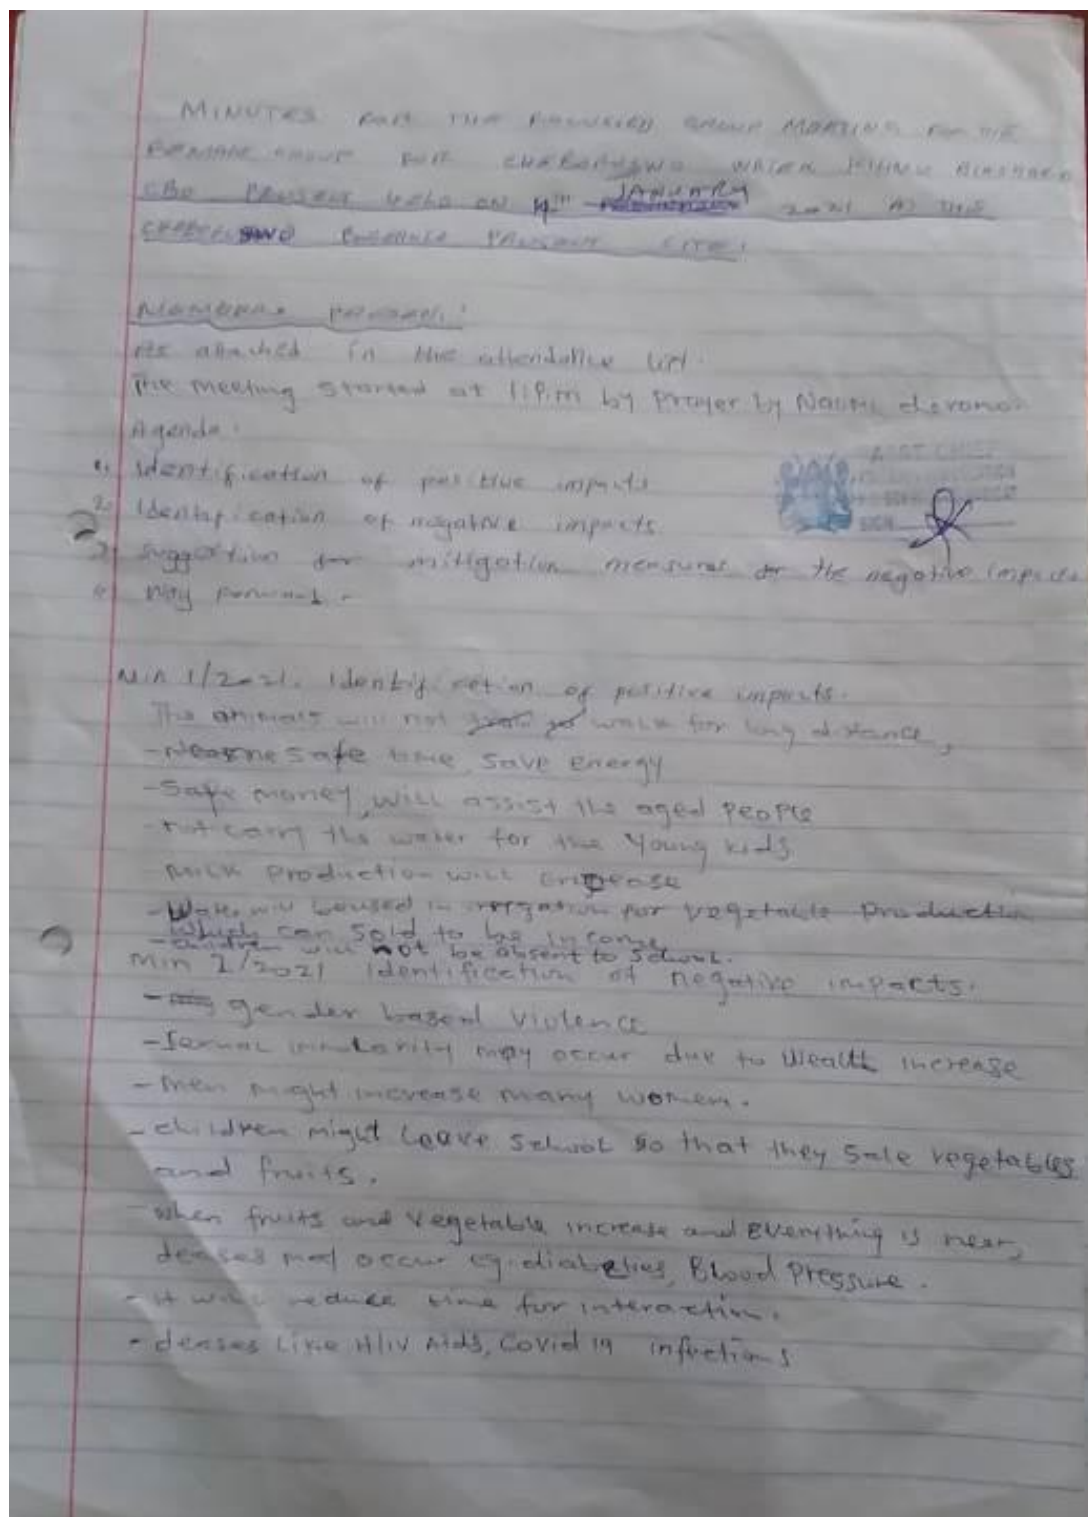 MINUTES FOR THE FOCUSED GROUP MEETING FOR THE
FEMALE GROUP FOR WATER
CBO PROJECT HELD ON 14TH JANUARY 2021 AT THE
PROJECT SITE.
MEMBERS PRESENT:
As attached in the attendance list.
The meeting started at 11P.m by Prayer by Naomi
Agenda:
1. Identification of positive impacts
2. Identification of negative impacts
3. Suggestion for mitigation measures for the negative impacts
4. Way forward.
ASST CHIEF
SIGN
Min 1/2021. Identification of positive impacts.
The animals will not walk for long distance,
- safe time, save energy
- Safe money, will assist the aged people
- not carry the water for the Young kids
Milk Production will increase
- Water will be used in irrigation for vegetable production
which can sold to be income
- children will not be absent to school.
Min 2/2021 Identification of negative impacts.
- gender based Violence
- Sexual may occur due to Wealth increase
- Men might increase many women.
- children might leave School so that they Sale vegetables
and fruits.
- When fruits and Vegetable increase and everything is near,
deases may occur eg. Blood Pressure.
- it will reduce time for interaction.
- deases Like Hiv Aids, Covid 19 infections